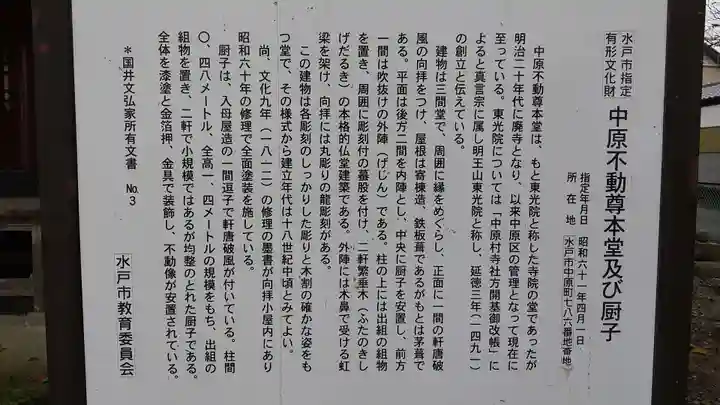 水戸市指定
有形文化財
中原不動尊本堂及び厨子
指定年月日 昭和六十一年四月一日
所在地 水戸市中原町七八六番地番地
中原不動尊本堂は、もと東光院と称した寺院の堂であったが
明治二十年代に廃寺となり、以来中原区の管理となって現在に
至っている。東光院については「中原村寺社方開基御改帳」に
よると真言宗に属し明王山東光院と称し、延徳三年(一四九一)
の創立と伝えている。
建物は三間堂で、周囲に縁をめぐらし、正面に一間の軒唐破
風の向拝をつけ、屋根は寄棟造、鉄板葺であるがもとは茅葺で
ある。平面は後方二間を内陣とし、中央に厨子を安置し、前方
一間は吹抜けの外陣(げじん)である。柱の上には出組の組物
を置き、周囲に彫刻付の蟇股を付け、二軒繁垂木(ふたのきし
げだるき)の本格的仏堂建築である。外陣には木鼻で受ける虹
梁を架け、向拝には丸彫りの龍彫刻がある。
この建物は各彫刻のしっかりした彫りと木割の確かな姿をも
つ堂で、その様式から建立年代は十八世紀中頃とみてよい。
尚、文化九年(一八一二)の修理の墨書が向拝小屋内にあり
昭和六十年の修理で全面塗装を施している。
厨子は、入母屋造の一間逗子で軒唐破風が付いている。柱間
〇、四八メートル、全高一、四メートルの規模をもち、出組の
組物を置き、二軒で小規模ではあるが均整のとれた厨子である。
全体を漆塗と金箔押、金具で装飾し、不動像が安置されている。
*国井文弘家所有文書 No.3
水戸市教育委員会